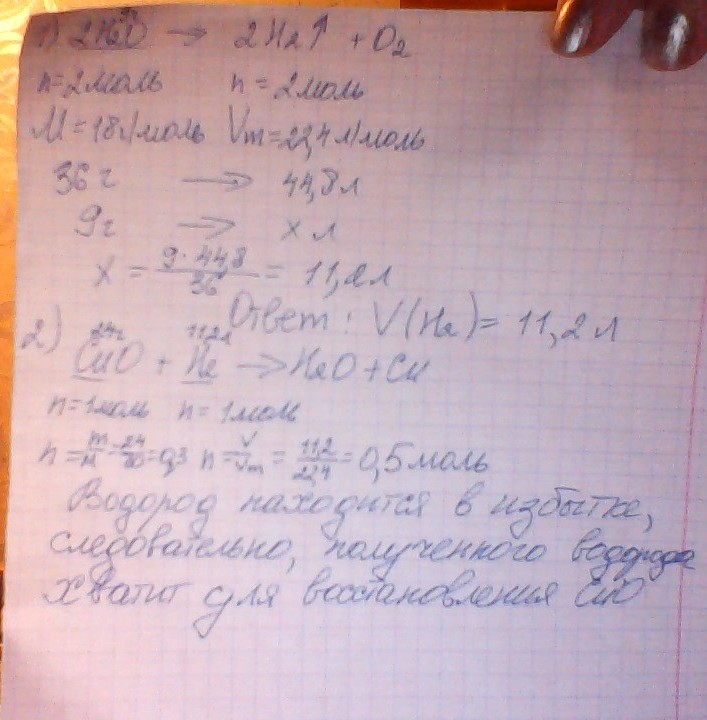 9г
1) 2H2O → 2H2↑ + O2
n=2моль n = 2моль
M=18г/моль Vm=22,4л/моль
36г → 44,8л
9г → x л
x = 9·44,8/36 = 11,2л
Ответ: V(H2)= 11,2л
2) 24г 11,2л
CuO + H2 → H2O + Cu
n=1моль n=1моль
n=m/M=24/80=0,3 n=V/Vm=11,2/22,4=0,5моль
Водород находится в избытке,
следовательно, полученного водорода
хватит для восстановления CuO